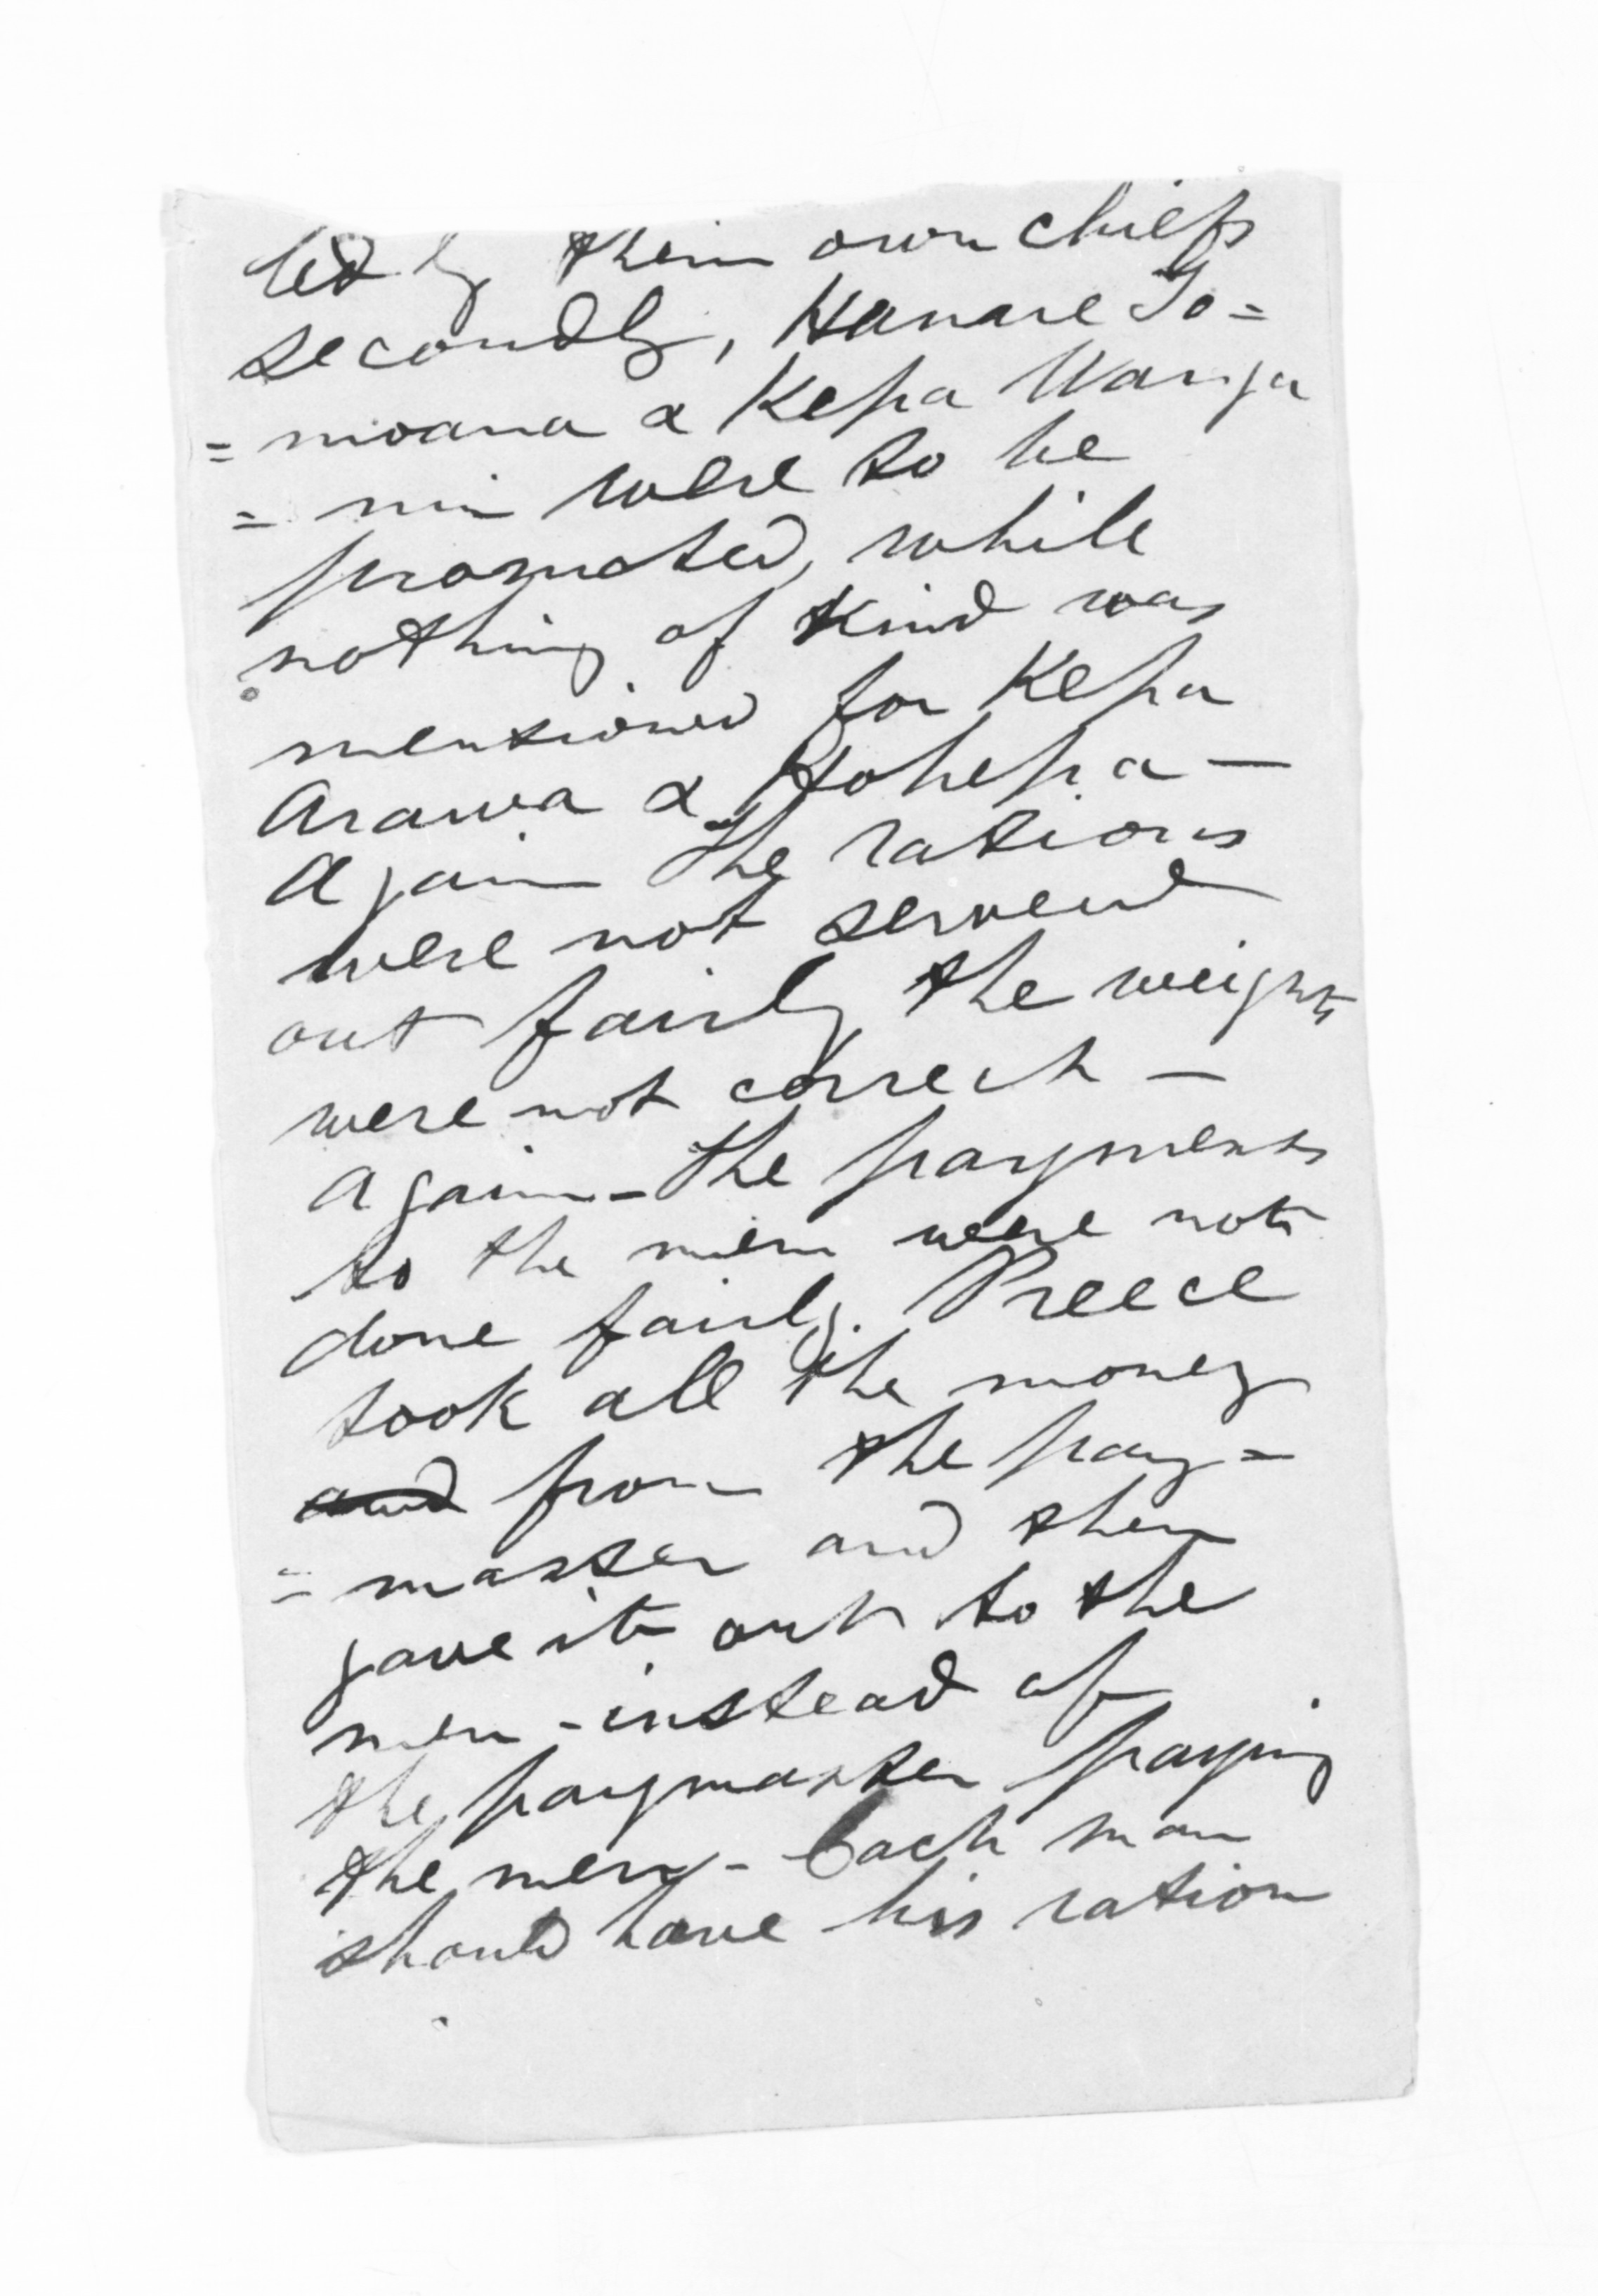 led by their own chiefs
secondly, Hanare To=
=moana & Kepa Wanga
=nui were to be
promoted, while
nothing of kind was
mentioned for Kepa
Arawa & Hohepa —
Again the rations
were not served
out fairly the weights
were not correct —
Again - the payments
to the men were not
done fairly. Preece
took all the money
and from the pay=
=master and then
gave it out to the
men - instead of
the paymaster paying
the men - Each man
should have his ration